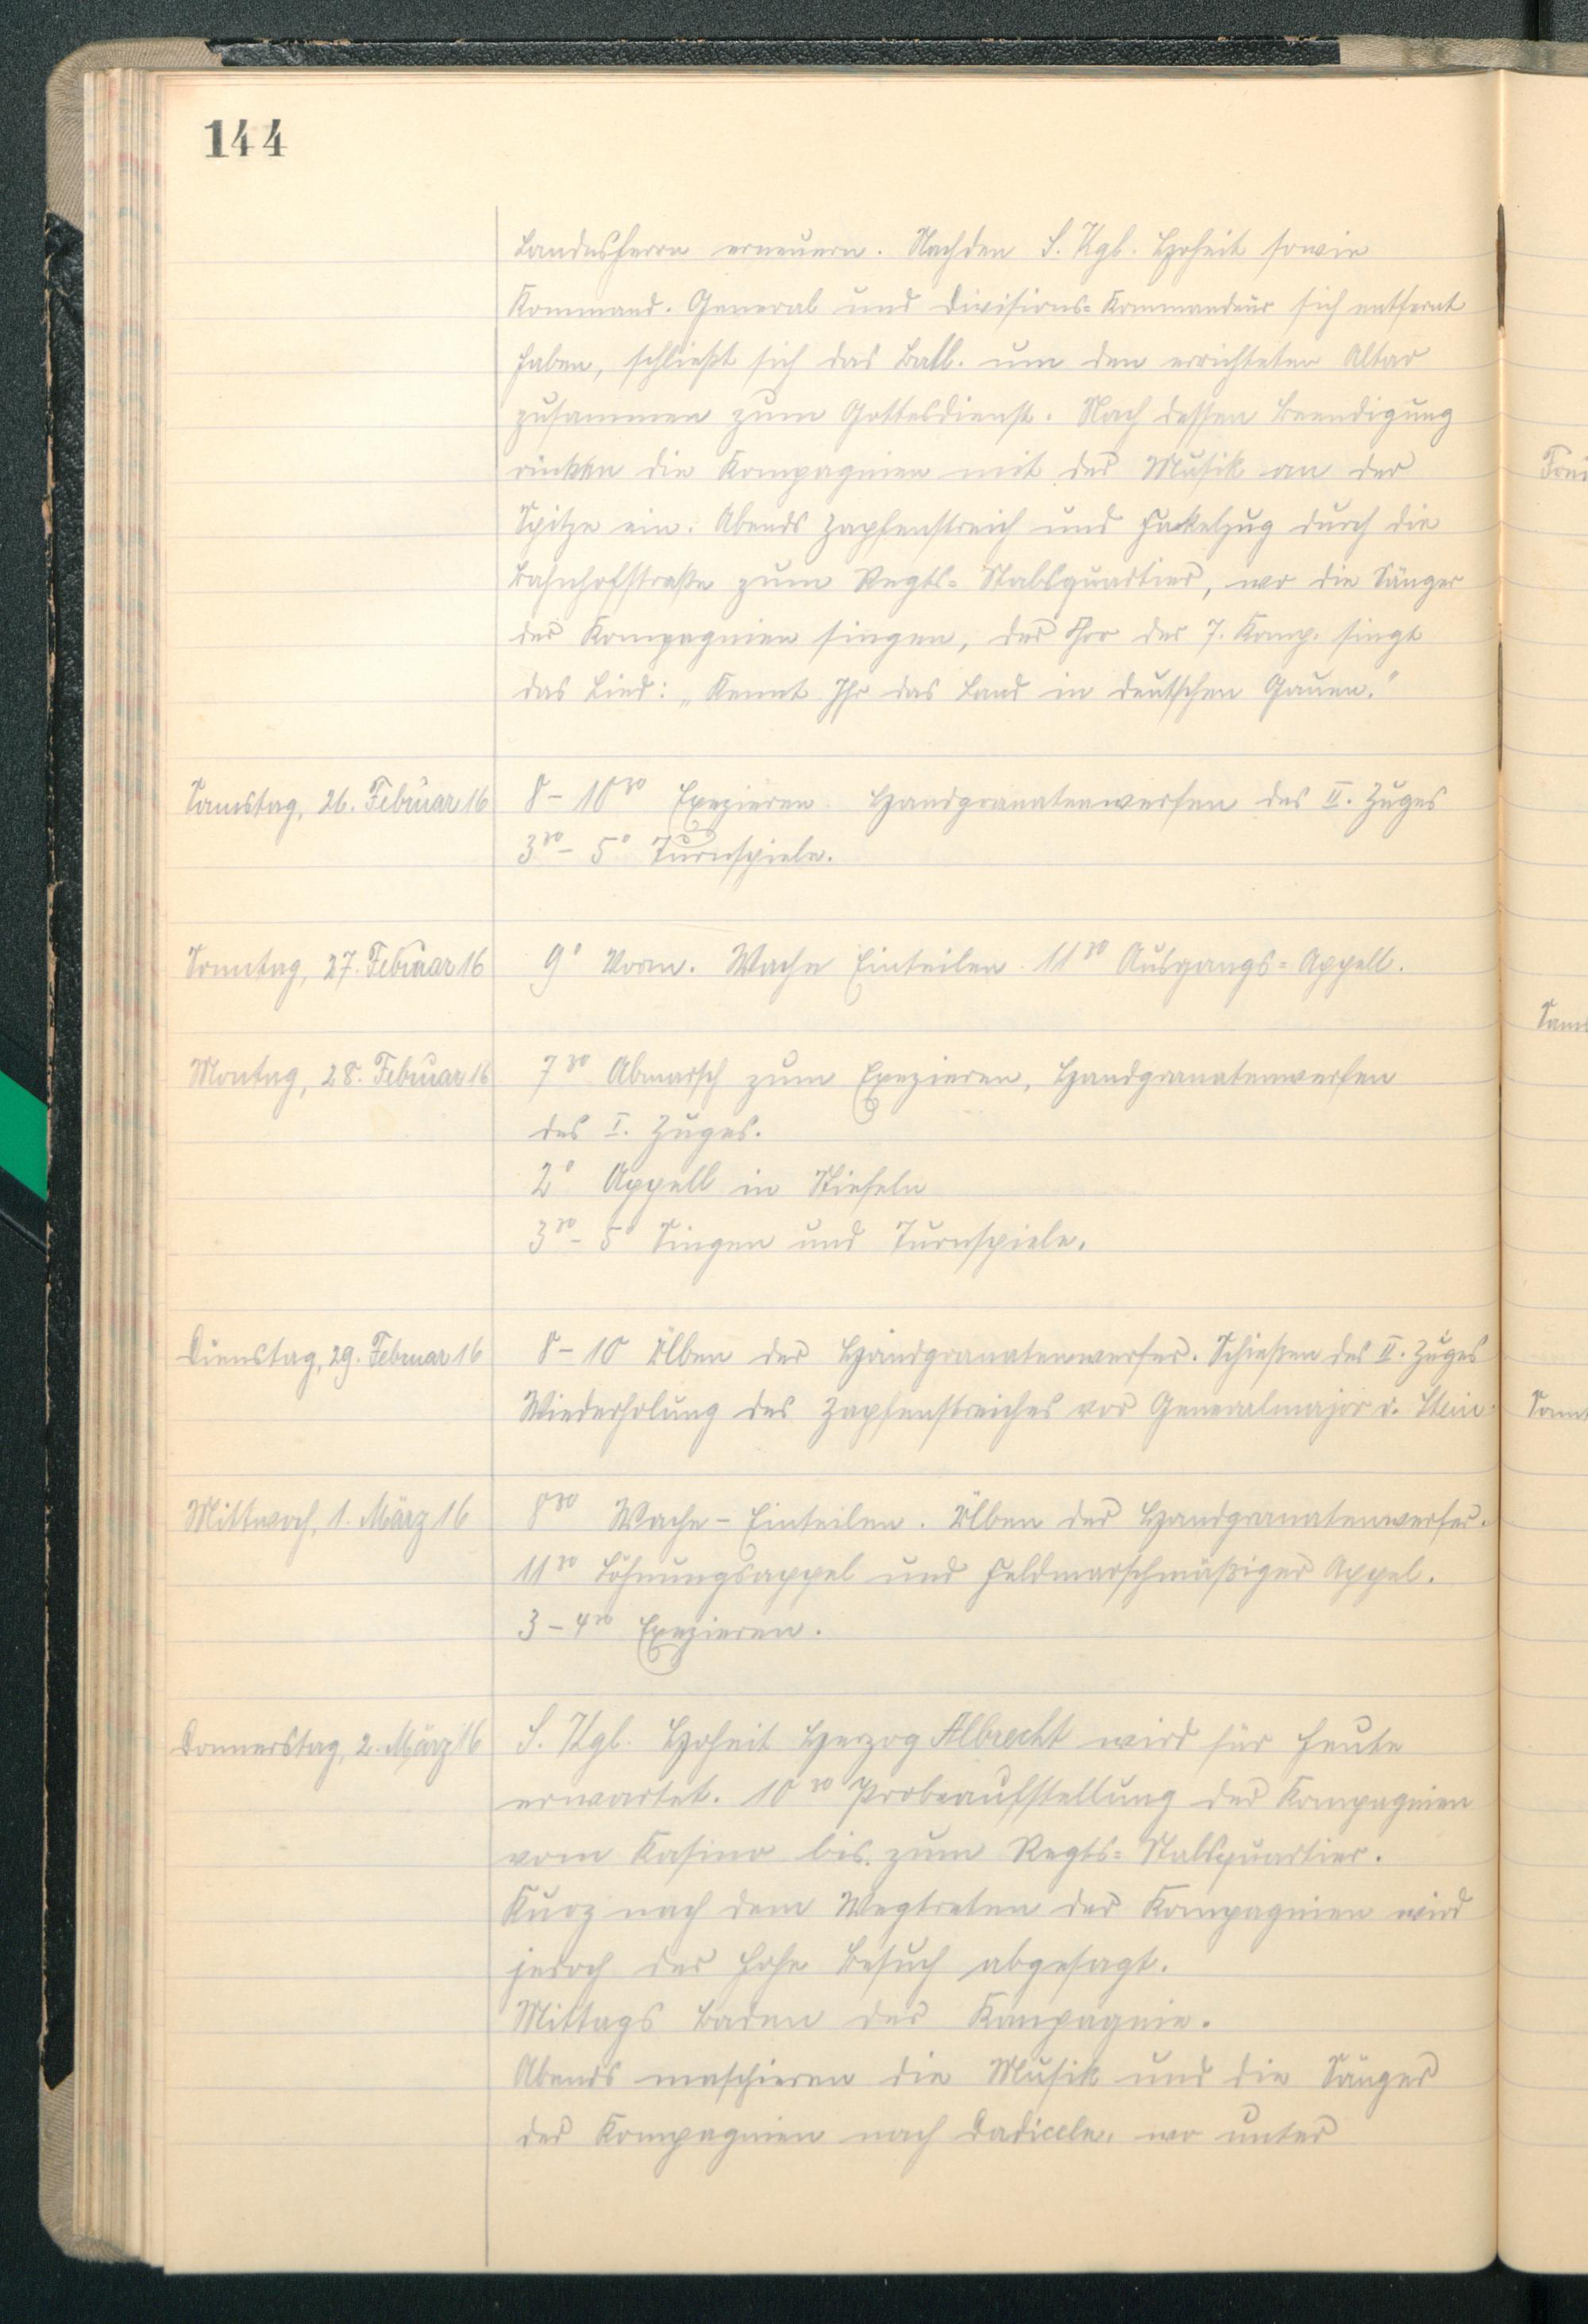 144
Landesherrn erneuern. Nachdem S. Kgl. Hoheit sowie
Kommand. General und Divisions-Kommandeur sich entfernt
haben, schließt sich das Batl. um den errichteten Altar
zusammen zum Gottesdienst. Nach dessen Beendigung
rücken die Kompagnien mit der Musik an der
Spitze ein. Abends Zapfenstreich und Fackelzug durch die
Bahnhofstraße zum Regts-Stabsquartier, wo die Sänger
der Kompagnien singen, der Chor der 7. Komp. singt
das Lied: „Kennt Ihr das Land in deutschen Gauen."
Samstag, 26. Februar 16 8-10³⁰ Exezieren Handgranatenwerfen des II. Zuges
3³⁰- 5° Turnspiele.
Sonntag, 27. Februar 16 9° Vorm. Wache Einteilen. 11³⁰ Ausgangs-Appell.
Montag, 28. Februar 16 7³⁰ Abmarsch zum Exezieren, Handgranatenwerfen
des I. Zuges.
2° Appell in Stiefeln
3³⁰- 5° Singen und Turnspiele.
Dienstag, 29. Februar 16 8-10 Üben der Handgranatenwerfer. Schießen des II. Zuges
Wiederholung des Zapfenstreiches vor Generalmajor v. Stein
Mittwoch, 1. März 16 8³⁰ Wache-Einteilen. Üben der Handgranatenwerfer.
11³⁰ Löhnungsappel und Feldmarschmäßiger Appel.
3-4³⁰ Exezieren.
Donnerstag, 2. März 16 S. Kgl. Hoheit Herzog Albrecht wird für heute
erwartet. 10³⁰ Probeaufstellung der Kompagnien
vom Kasino bis zum Regts-Stabsquartier.
Kurz nach dem Wegtreten der Kompagnien wird
jedoch der hohe Besuch abgesagt.
Mittags Baden der Kompagnie.
Abends maschieren die Musik und die Sänger
der Kompagnien nach Dadicele, wo unter